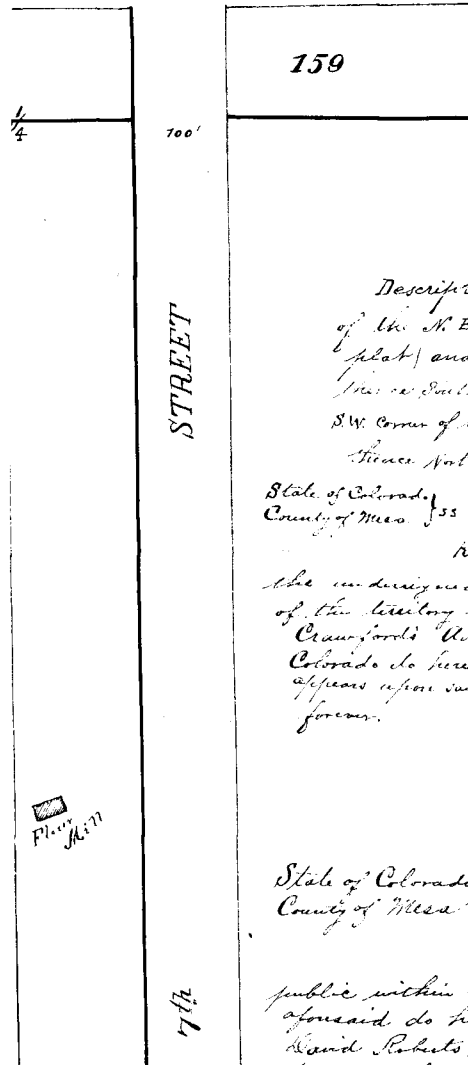 159
1/4
100'
STREET
7th
Flour
Mill
of the N. E
plat) and
S.W. Corner of
thence Nort
State of Colorado
County of Mesa } ss
the undersigned
of the territory
Crawford's Ad
Colorado do here
appears upon sa
forever.
State of Colorado
County of Mesa
public within
aforesaid do h
David Roberts